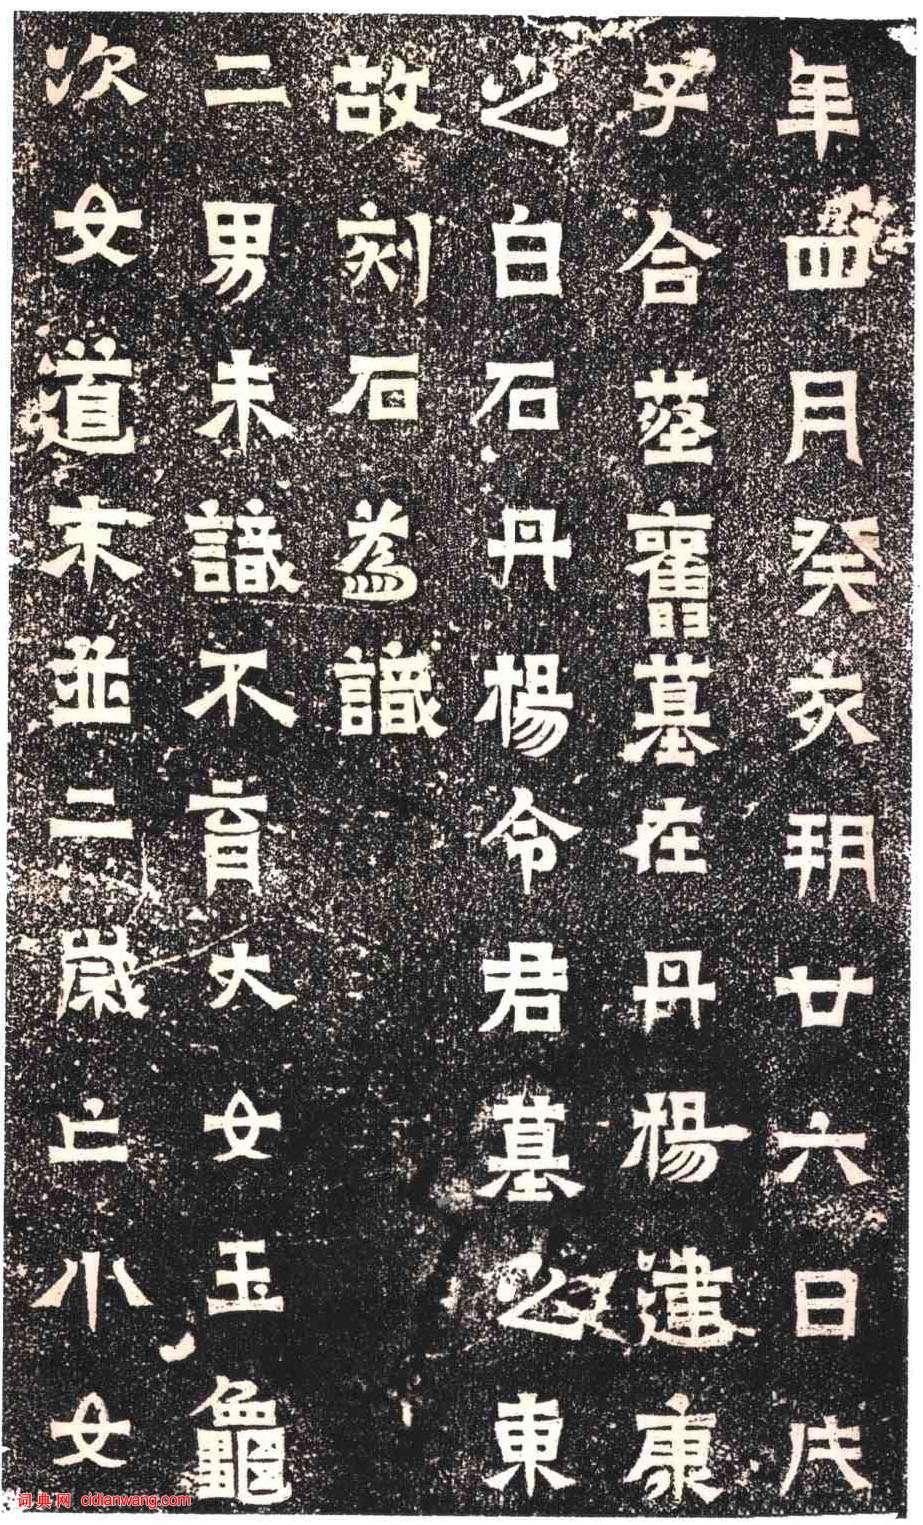 年四月癸亥朔廿六日戊
子合葬舊墓在丹楊建康
之白石丹楊令君墓之東
故刻石為識
二男未識不育大女玉龜
次女道末並二歲亡小女
词典网 cidianwang.com